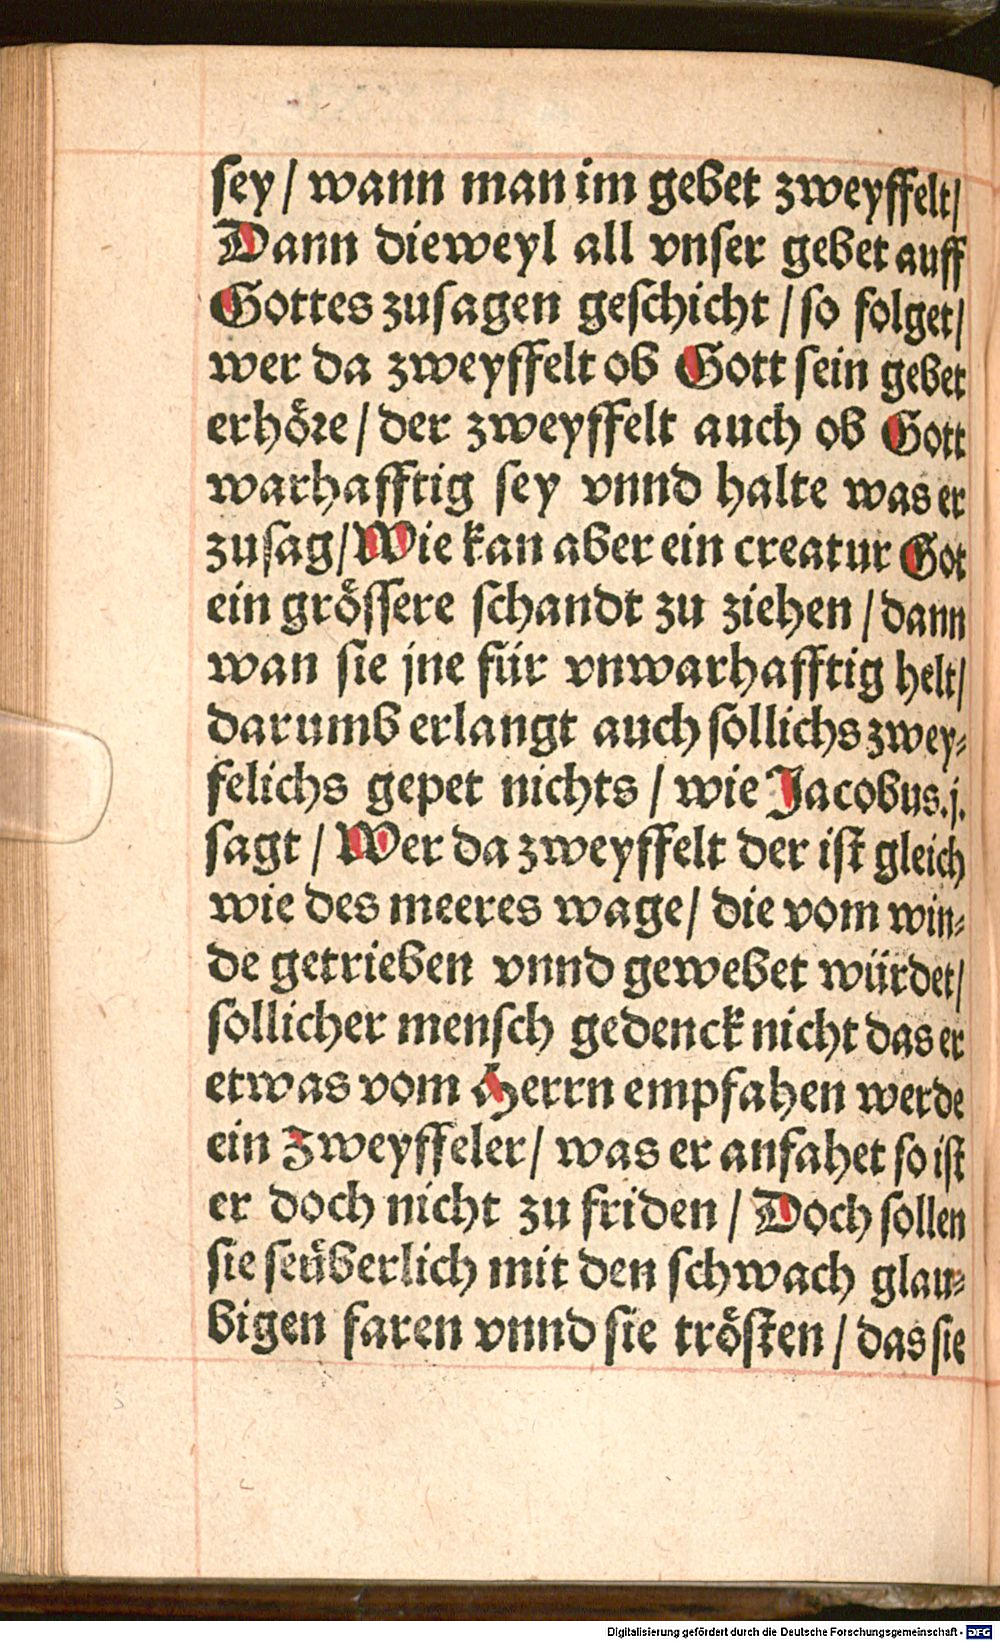 sey / wann man im gebet zweyffelt /
Dann dieweyl all vnser gebet auff
Gottes zusagen geschicht / so folget /
wer da zweyffelt ob Gott sein gebet
erhöre / der zweyffelt auch ob Gott
warhafftig sey vnnd halte was er
zusag / Wie kan aber ein creatur Got
ein grössere schandt zu ziehen / dann
wan sie jne für vnwarhafftig helt /
darumb erlangt auch sollichs zwey=
felichs gepet nichts / wie Jacobus. j.
sagt / Wer da zweyffelt der ist gleich
wie des meeres wage / die vom win=
de getrieben vnnd gewebet würdet /
sollicher mensch gedenck nicht das er
etwas vom Herrn empfahen werde
ein Zweyffeler / was er anfahet so ist
er doch nicht zu friden / Doch sollen
sie seüberlich mit den schwach glau=
bigen faren vnnd sie trösten / das sie
Digitalisierung gefördert durch die Deutsche Forschungsgemeinschaft - DFG